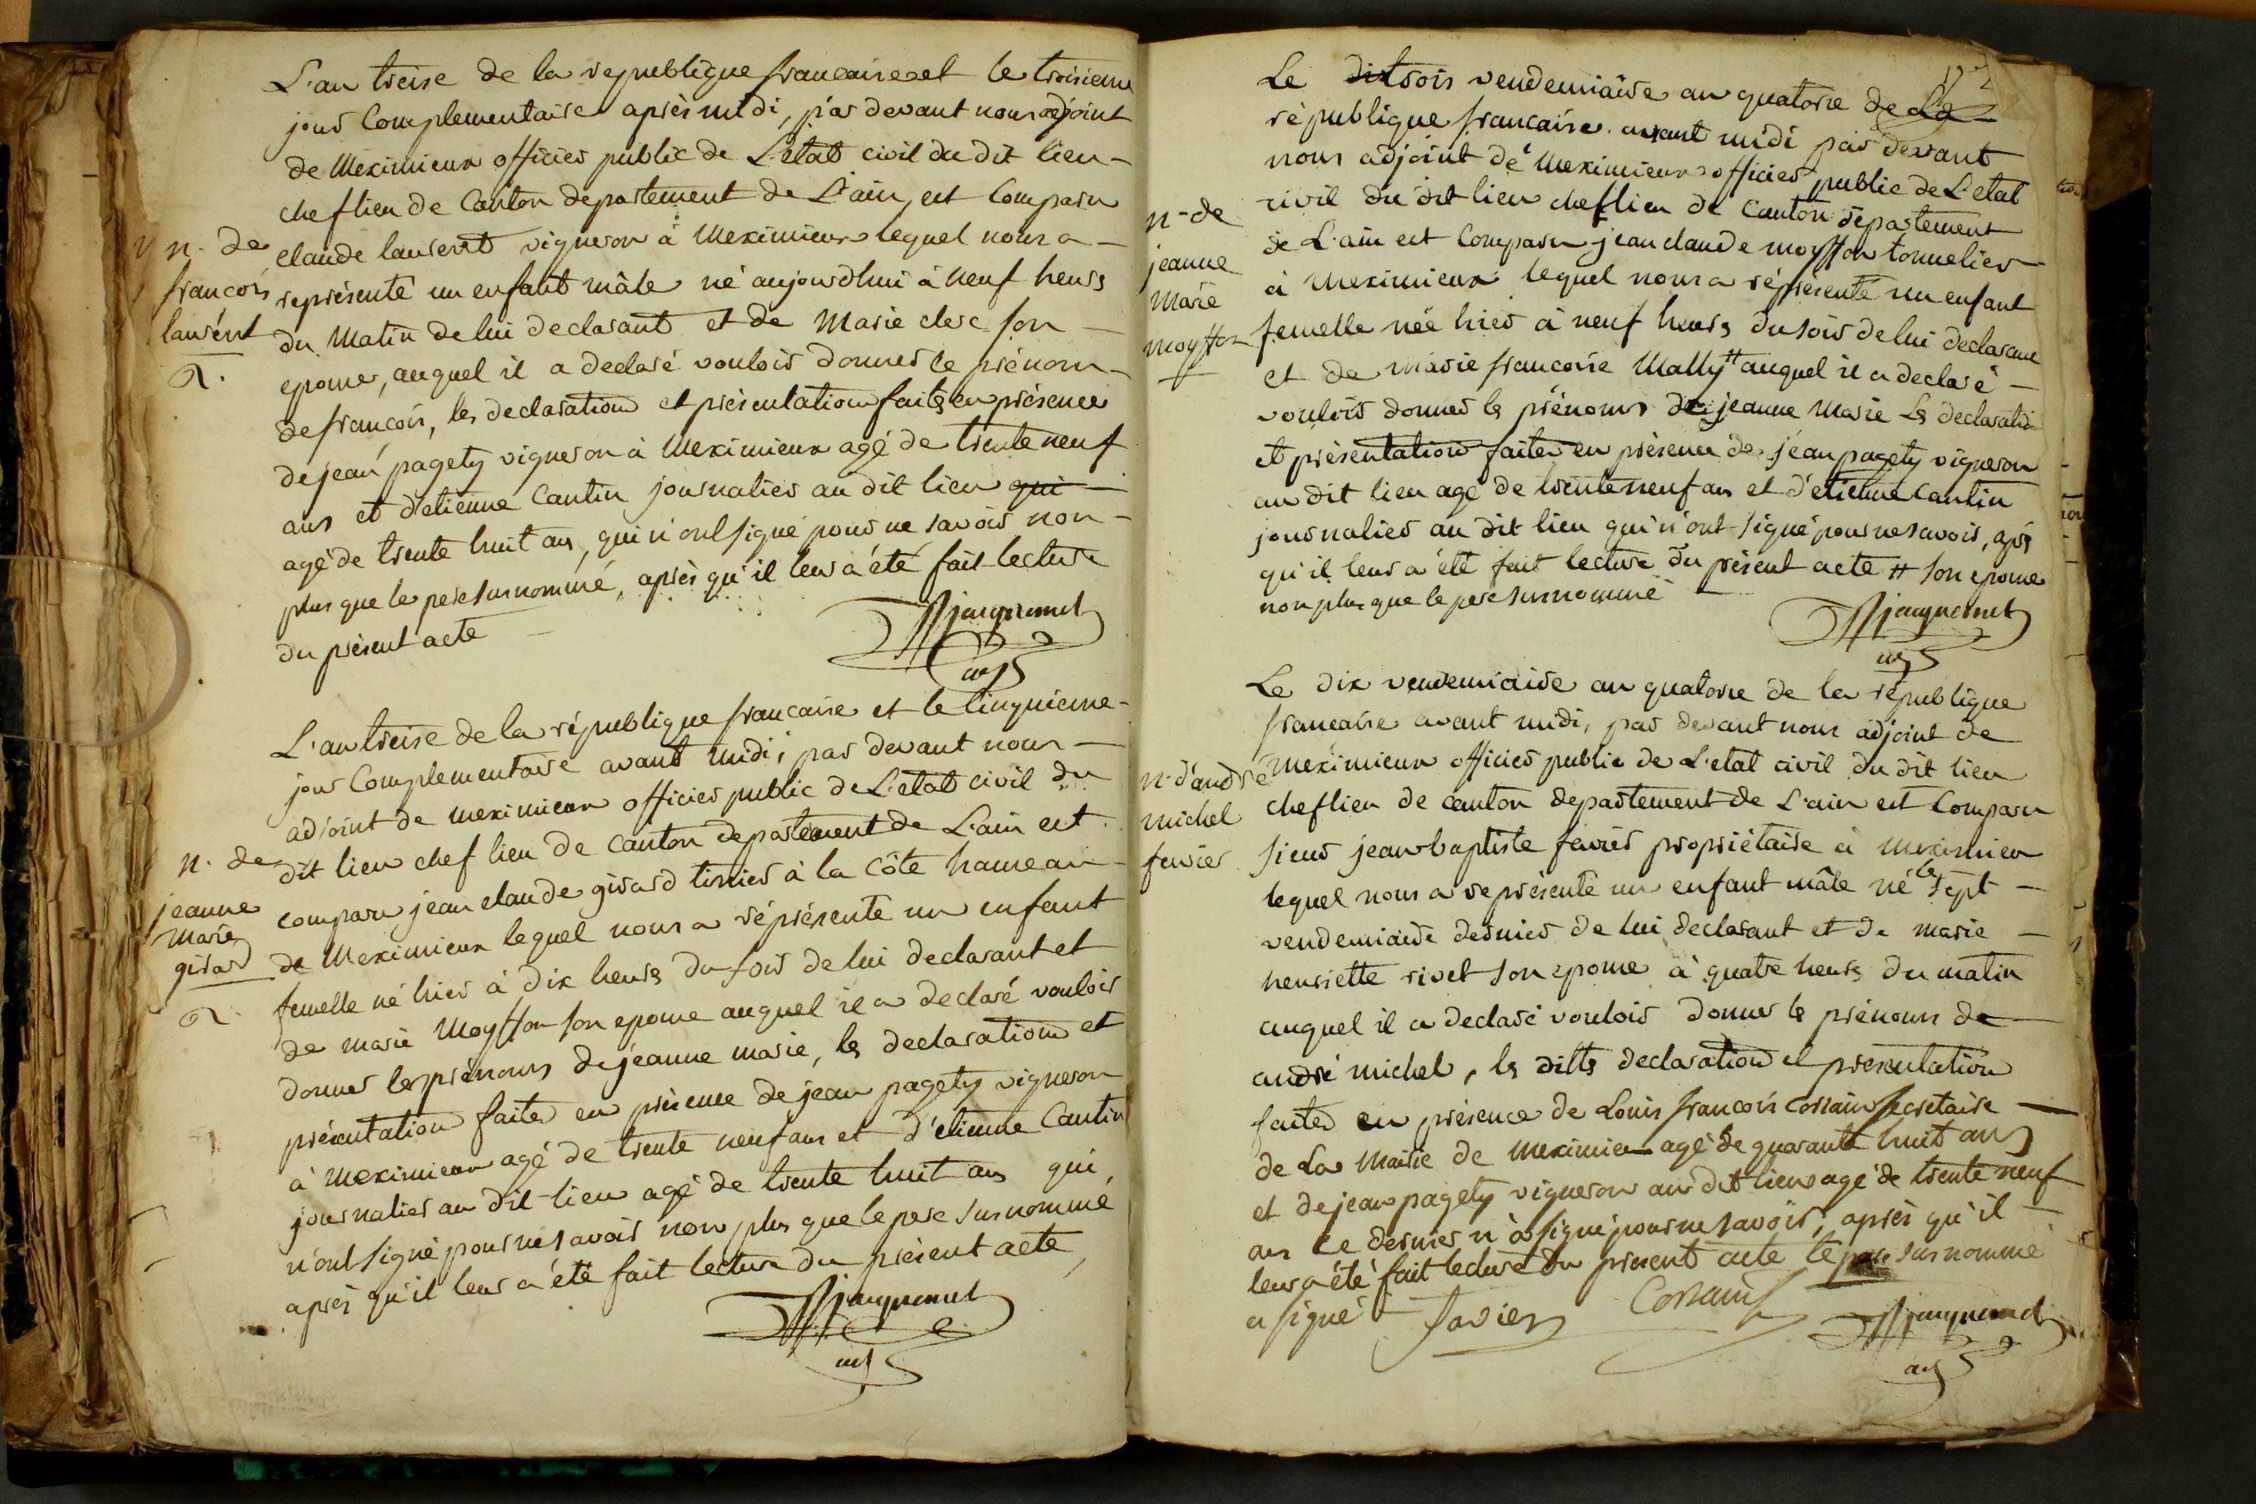 n. de
françois
laurént
L'an treise de la republique françaises et le troisieme
jour Complementaire après midi, par devant nous adjoint
de Meximieux officier public de L'état civil du dit lieu
chef lieu de Canton departement de L'ain, est Comparu
claude laurent vigneron à Meximieux lequel nous a
représenté un enfant mâle né aujourd'hui à neuf heurs
du Matin de lui declarant et de Marie clerc son
epouse, auquel il a declaré vouloir donner le prénom
de françois, les declaration et présentation faits en présence
de jean pagety vigneron à Meximieux agé de trente neuf
ans et d'etienne Cantin journalier au dit lieu qui
agé de trente huit ans, qui n'ont signé pour ne savoir non
plus que le pere susnommé, après qu'il leur a été fait lecture
du présent acte
jaquemet
adj
n. de
jeanne
Marie
girard
L'an treise de la république francaise et le Cinquieme
jour Complementaire avant midi, par devant nous
adjoint de meximieux officier public de L'etat civil du
dit lieu chef lieu de Canton departement de L'ain est
comparu jean claude girard tissier à la Côte hameau
de Meximieux lequel nous a réprésenté un enfant
femelle né hier à dix heurs du soir de lui declarant et
de marie Moysson son epouse auquel il a declaré vouloir
donner les prénoms de jeanne marie, les declaration et
présentation faites en présence de jean pagety vigneron
à Meximieux agé de trente neuf ans et d'étienne Cantin
journalier au dit lieu agé de trente huit ans qui
n'ont signé pour ne savoir non plus que le pere susnommé
après qu'il leur a été fait lecture du présent acte
jaquemet
adj
n. de
jeanne
Marie
moysson
Le dit trois vendemiaire an quatorse de La
république francaise avant midi par devant
nous adjoint de Meximieux officier public de L'etat
civil du dit lieu chef lieu de Canton departement
de L'ain est Comparu jean claude moysson tonnelier
à Meximieux lequel nous a réprésenté un enfant
femelle née hier à neuf heurs du soir de lui declarant
et de marie francoise Mally # auquel il a declaré
vouloir donner les prénoms de jeanne Marie Les declaration
et présentation faites en présence de jean pagety vigneron
au dit lieu agé de trente neuf ans et d'étienne Cantin
journalier au dit lieu qui n'ont signé pour ne savoir, après
qu'il leur a été fait lecture du présent acte # son epouse
non plus que le pere susnommé
jaquemet
adj
n. d'andré
michel
fevrier
Le dix vendemiaire an quatorse de la république
francaise avant midi, par devant nous adjoint de
Meximieux officier public de L'etat civil du dit lieu
chef lieu de canton departement de L'ain est Comparu
sieur jean baptiste favier propriétaire à Meximieu
lequel nous a représenté un enfant mâle né le sept
vendemiaire dernier de lui declarant et de marie
henriette rivet son epouse à quatre heurs du matin
auquel il a declaré vouloir donner les prénoms de
andré michel, les dittes declaration et presentation
faites en présence de Louis francois Cossain secretaire
de La Mairie de Meximieu agé de quarante huit ans
et de jean pagety vigneron au dit lieu agé de trente neuf
ans Ce dernier n'a signé pour ne savoir, après qu'il
leur a été fait lecture du présent acte le pere susnommé
a signé
favier
Cossain
jaquemet
adj